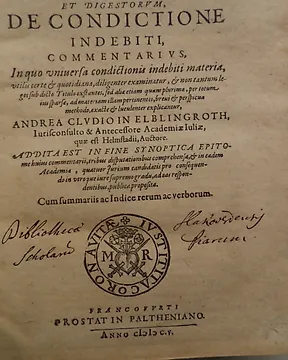 ET DIGESTORVM,
DE CONDICTIONE
INDEBITI,
COMMENTARIVS,
In quo vniuersa condictionū indebiti materia,
vtilis certe & quotidiana, diligenter examinatur, & non tantum leges sub dicto Titulo exstantes, sed aliæ etiam quam plurimæ, per totum
ius sparsæ, ad materiam istam pertinentes, breui & perspicua
methodo, exacte & luculenter explicantur,
ANDREA CLVDIO IN ELBLINGROTH,
Iurisconsulto & Antecessore Academiæ Iuliæ,
quæ est Helmstadii, Auctore.
ADDITA EST IN FINE SYNOPTICA EPITO-
me huius commentarii, tribus disputationibus comprehensa, & in eadem
Academia, quatuor Iurium candidatis pro consequen-
do in vtroque iure supremo gradu, ad eas respon-
dentibus, publice proposita.
Cum summariis ac Indice rerum ac verborum.
Bibliotheca
Scholarū
Piarum
IVSTITIA CORONA VITÆ
M R
FRANCOFVRTI
PROSTAT IN PALTHENIANO.
ANNO